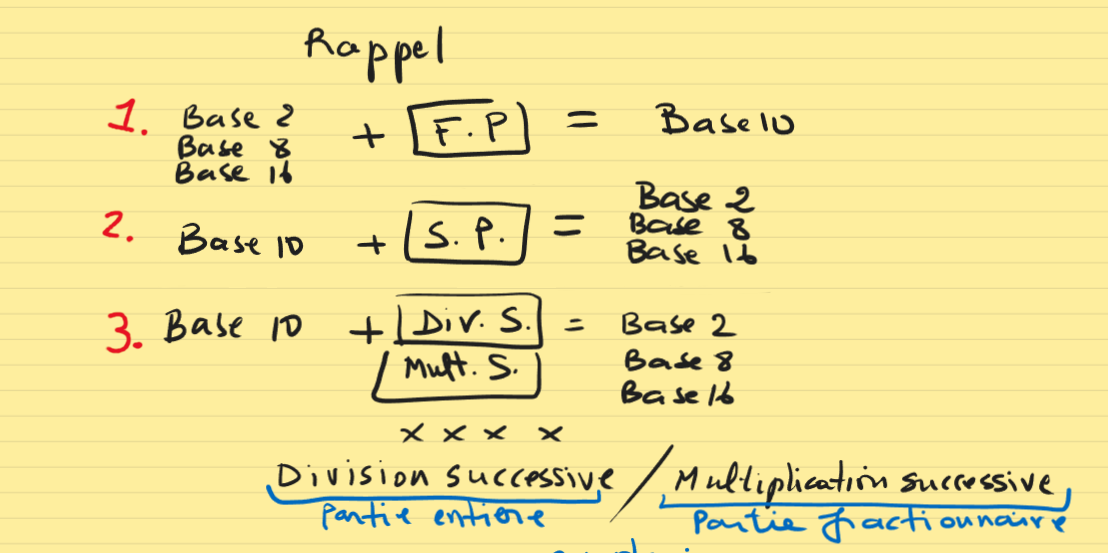 Rappel
1. Base 2
Base 8
Base 16
+ F.P = Base 10
2. Base 10 + S.P. =
Base 2
Base 8
Base 16
3. Base 10 + Div. S. = Base 2
Mult. S. Base 8
Base 16
x x x x
Division successive / Multiplication successive
Partie entière Partie fractionnaire